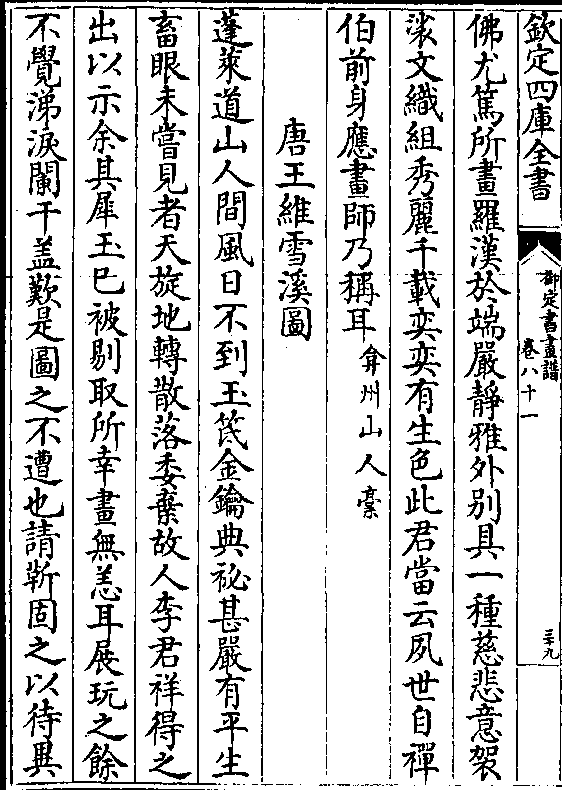 欽定四庫全書
御定書畫譜
卷八十一
三十九
佛尤篤所畫羅漢於端嚴靜雅外别具一種慈悲意袈
裟文織組秀麗千載奕奕有生色此君當云夙世自禪
伯前身應畫師乃稱耳弇州山人稾
唐王維雪溪圖
蓬萊道山人間風日不到玉笢金鑰典祕甚嚴有平生
畜眼未嘗見者天旋地轉散落委棄故人李君祥得之
出以示余其犀玉已被剔取所幸畫無恙耳展玩之餘
不覺涕淚闌干盖歎是圖之不遭也請靳固之以待異